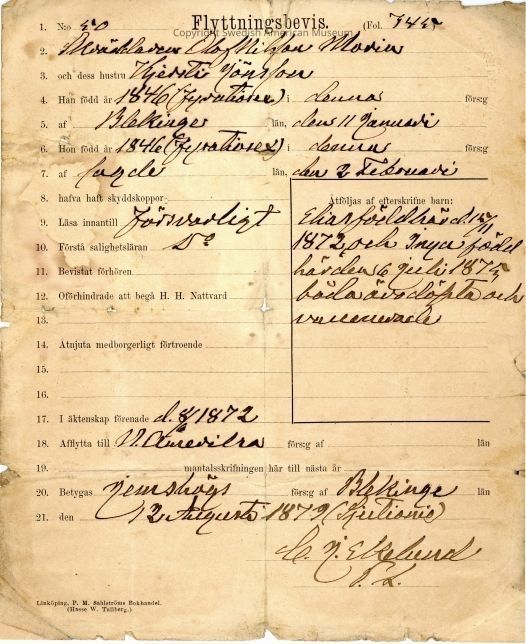 1. N:o 50 Flyttningsbevis. (Fol.
Copyright Swedish American Museum
2. Olof Nilsson Modin
3. och dess hustru Kjersti Jönsson
4. Han född år 1846 (fyratiosex) i denna förs:g
5. af Blekinge län, den 11 Januari
6. Hon född år 1846 (fyratiosex) i denna förs:g
7. af sagde län, den 2 Februari
8. hafva haft skyddskoppor
9. Läsa innantill Försvarligt
10. Förstå salighetsläran Do
11. Bevistat förhören
12. Oförhindrade att begå H. H. Nattvard
13.
14. Åtnjuta medborgerligt förtroende
15.
16.
Åtföljas af efterskrifne barn:
Elias född här d. 15/11
1872, och Inga född
här den 6 juli 1875
båda äro döpta och
vaccinerade
17. I äktenskap förenade d. 1872
18. Afflytta till N. Amerika förs:g af län
19. mantalsskrifningen här till nästa år
20. Betygas Jemshögs förs:g af Blekinge län
21. den 12 Augusti 1879 (sjutionie)
C. N. Ekelund
Linköping, P. M. Sahlströms Bokhandel.
(Hasse W. Tullberg.)